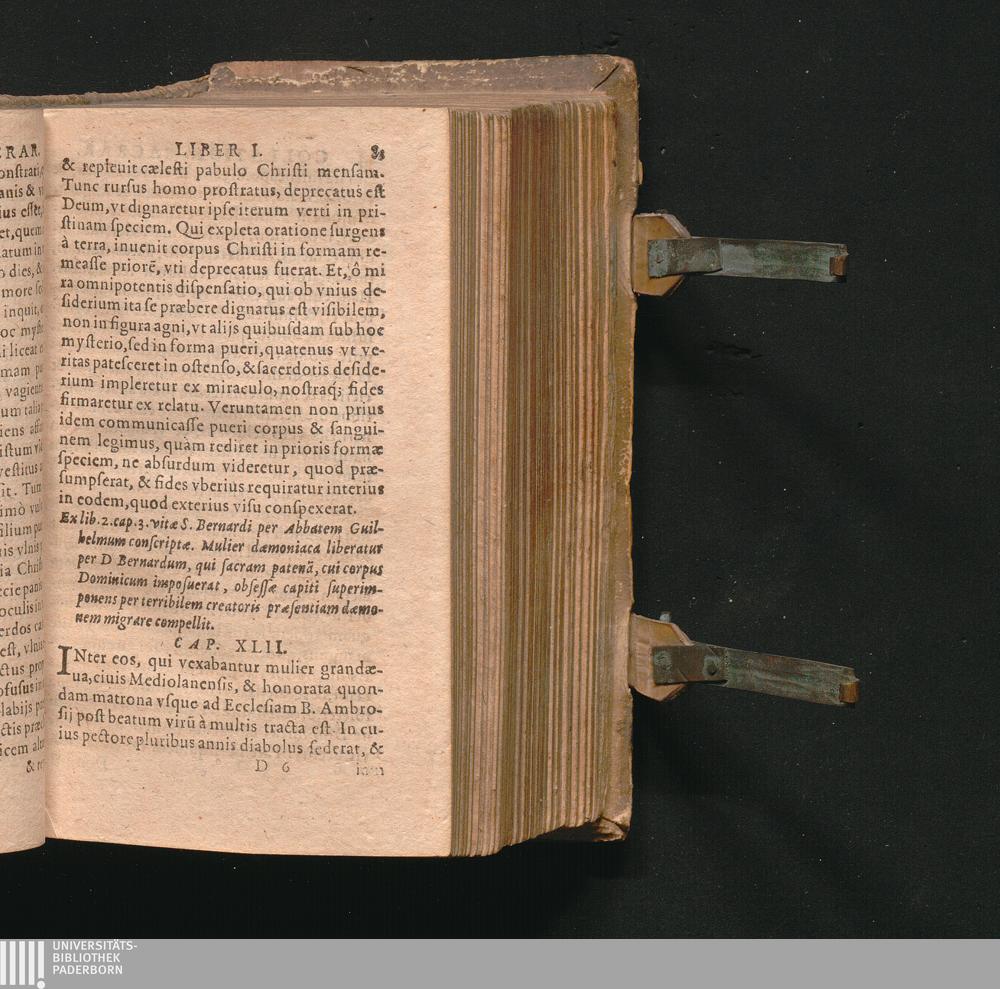 LIBER I. 83
& repleuit cælesti pabulo Christi mensam.
Tunc rursus homo prostratus, deprecatus est
Deum, vt dignaretur ipse iterum verti in pri-
stinam speciem. Qui expleta oratione surgens
à terra, inuenit corpus Christi in formam re-
measse priorē, vti deprecatus fuerat. Et, ô mi
ra omnipotentis dispensatio, qui ob vnius de-
siderium ita se præbere dignatus est visibilem,
non in figura agni, vt alijs quibusdam sub hoc
mysterio, sed in forma pueri, quatenus vt ve-
ritas patesceret in ostenso, & sacerdotis deside-
rium impleretur ex miraculo, nostraq́; fides
firmaretur ex relatu. Veruntamen non prius
idem communicasse pueri corpus & sangui-
nem legimus, quàm rediret in prioris formæ
speciem, ne absurdum videretur, quod præ-
sumpserat, & fides vberius requiratur interius
in eodem, quod exterius visu conspexerat.
Ex lib. 2. cap. 3. vitæ S. Bernardi per Abbatem Guil-
helmum conscriptæ. Mulier dæmoniaca liberatur
per D Bernardum, qui sacram patenā, cui corpus
Dominicum imposuerat, obsessæ capiti superim-
ponens per terribilem creatoris præsentiam dæmo-
nem migrare compellit.
CAP. XLII.
INter eos, qui vexabantur mulier grandæ-
ua, ciuis Mediolanensis, & honorata quon-
dam matrona vsque ad Ecclesiam B. Ambro-
sij post beatum virū à multis tracta est. In cu-
ius pectore pluribus annis diabolus sederat, &
D 6 iam
UNIVERSITÄTS-
BIBLIOTHEK
PADERBORN